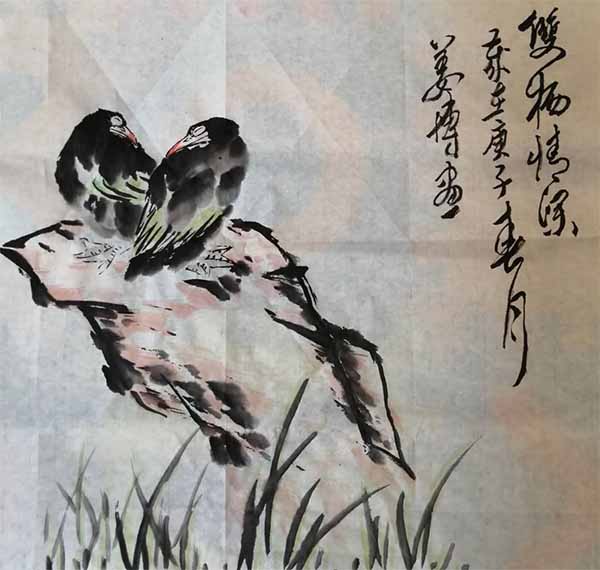 雙栖情深
歲在庚子春月
姜博画